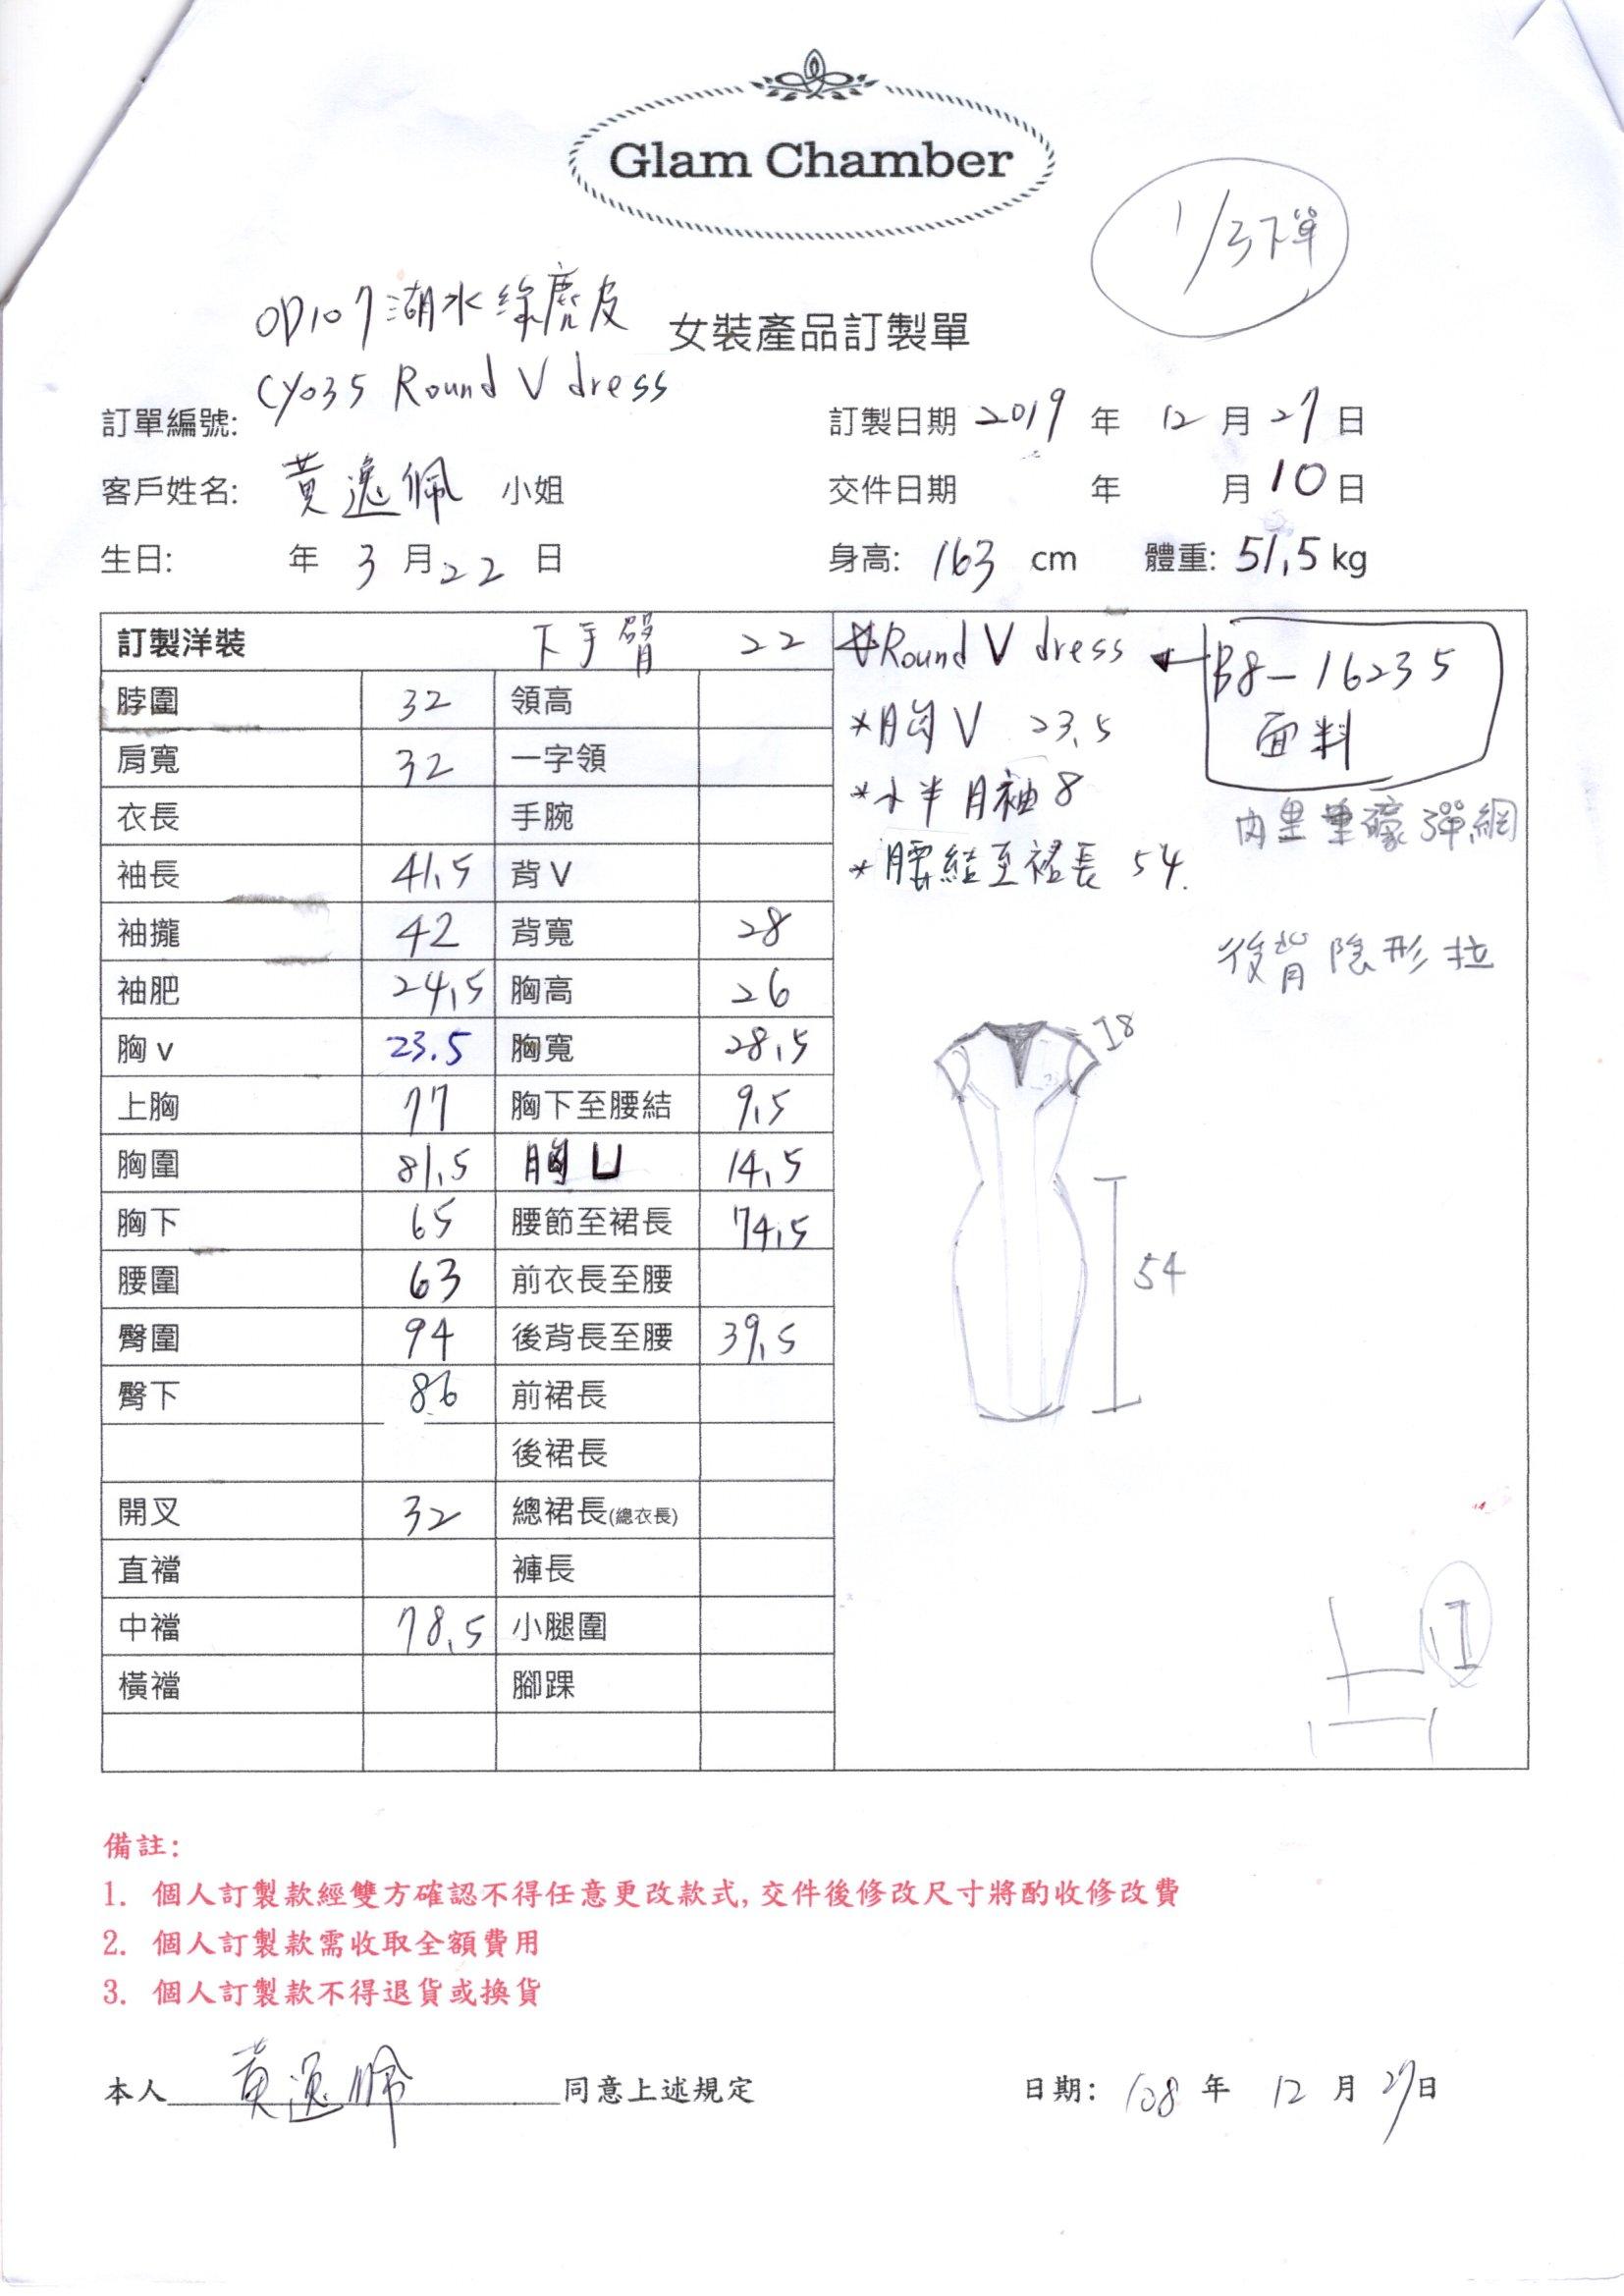 Glam Chamber
1/3下單
OD107湖水綠麂皮
女裝產品訂製單
CY035 Round V dress
訂單編號: 訂製日期 2019 年 12 月 27 日
客戶姓名: 黃逸佩 小姐 交件日期 年 月 10 日
生日: 年 3 月 22 日 身高: 163 cm 體重: 51.5 kg
訂製洋裝 下手臂 22
脖圍 32 領高
肩寬 32 一字領
衣長 手腕
袖長 41.5 背V
袖攏 42 背寬 28
袖肥 24.5 胸高 26
胸v 23.5 胸寬 28.5
上胸 77 胸下至腰結 9.5
胸圍 81.5 胸U 14.5
胸下 65 腰節至裙長 74.5
腰圍 63 前衣長至腰
臀圍 94 後背長至腰 39.5
臀下 86 前裙長
後裙長
開叉 32 總裙長(總衣長)
直襠 褲長
中襠 78.5 小腿圍
橫襠 腳踝
Round V dress
B8-16235
面料
*胸V 23.5
*小半月袖8
內里 彈網
*腰結至裙長 54.
後背隱形拉
8
54
備註:
1. 個人訂製款經雙方確認不得任意更改款式,交件後修改尺寸將酌收修改費
2. 個人訂製款需收取全額費用
3. 個人訂製款不得退貨或換貨
本人 黃逸佩 同意上述規定 日期: 108 年 12 月 27 日